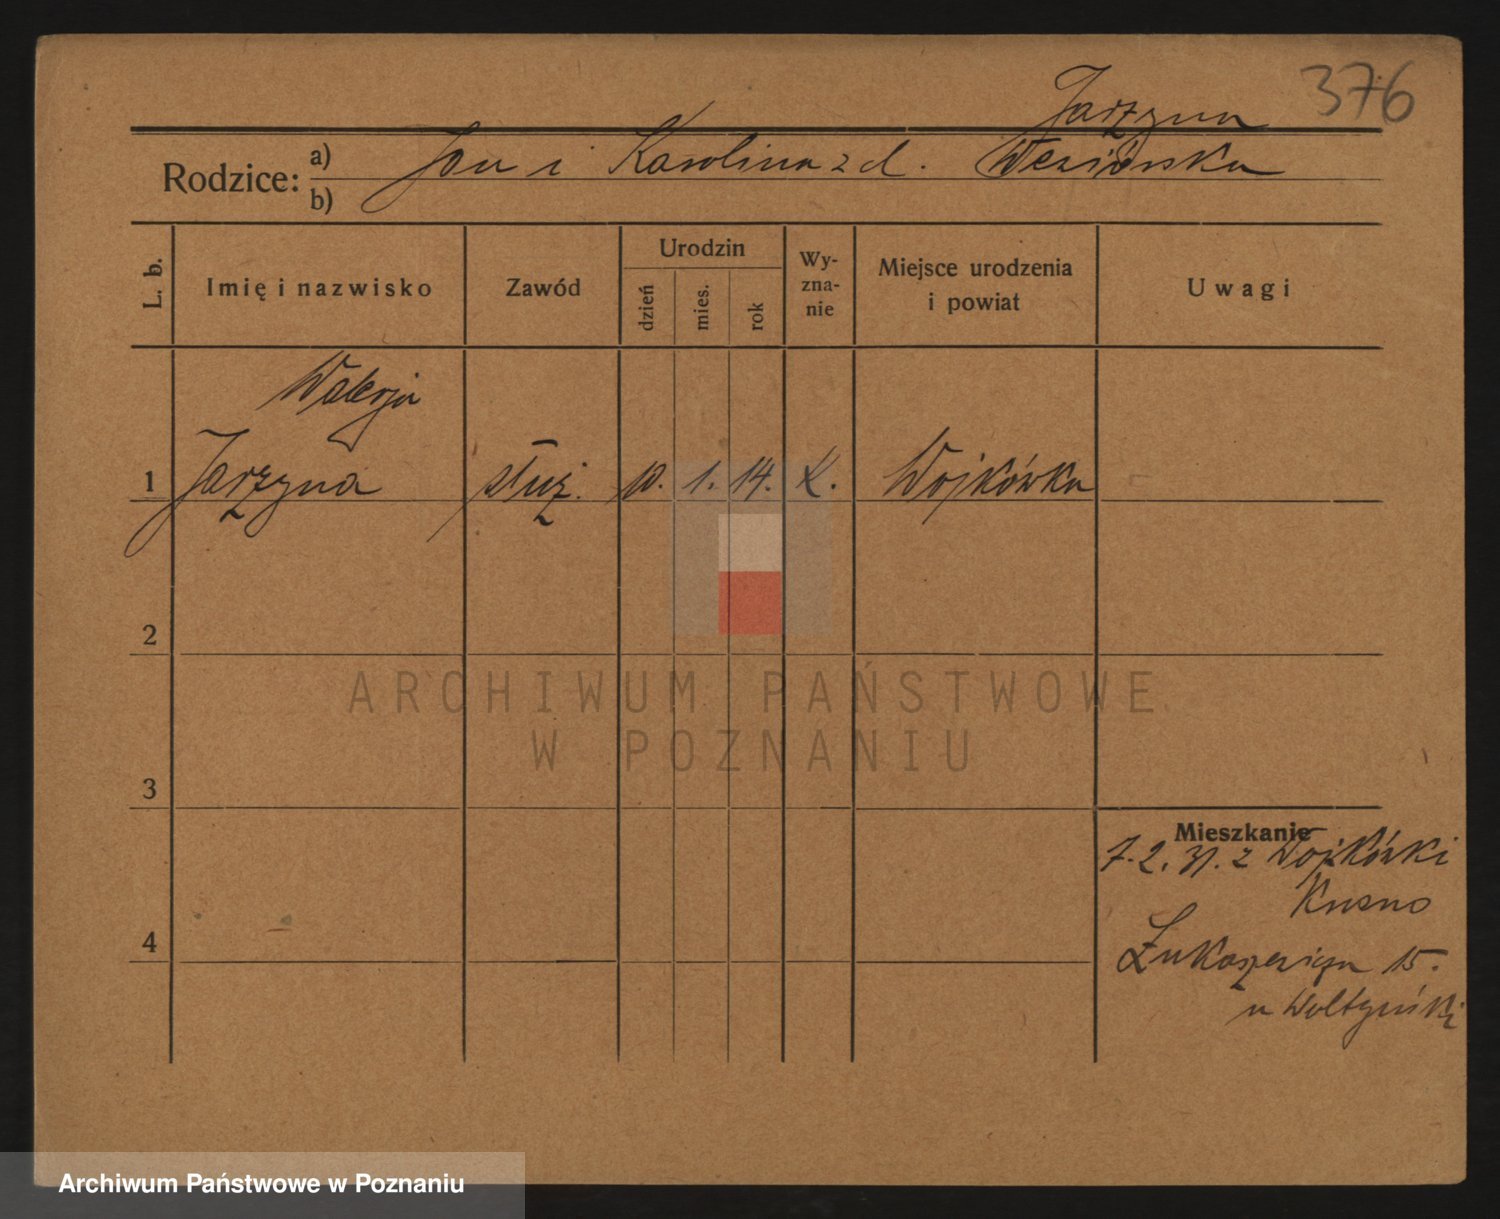 376
Jarzyna
Rodzice: a) Jan i Karolina z d.
b)
L. b. Imię i nazwisko Zawód Urodzin dzień mies. rok Wy-zna-nie Miejsce urodzenia i powiat Uwagi
Walerja
1 Jarzyna służ. 10. 1. 14. K. Wojkówka
2
3
Mieszkanie
7. 2. 31. z Wojkówki
Krosno
4
15.
ARCHIWUM PAŃSTWOWE
W POZNANIU
Archiwum Państwowe w Poznaniu